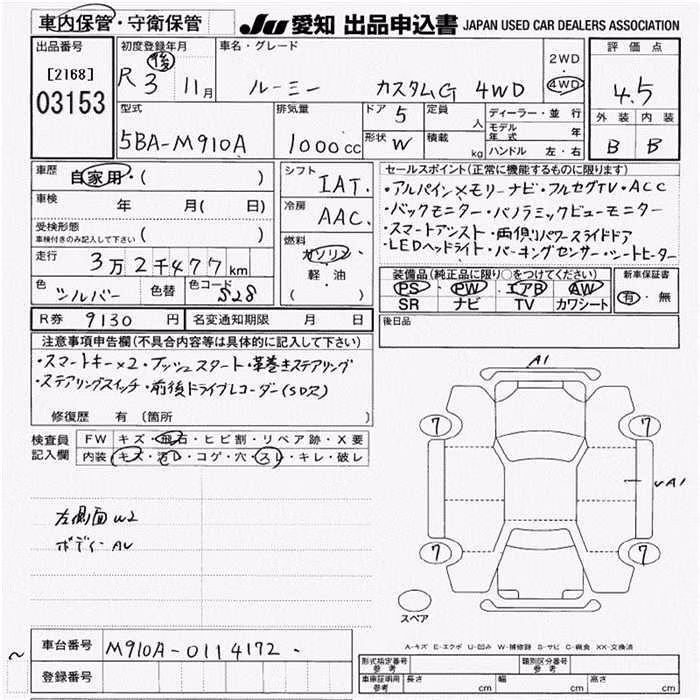 車内保管・守衛保管
JU 愛知 出品申込書 JAPAN USED CAR DEALERS ASSOCIATION
出品番号
[2168]
03153
初度登録年月
R 3 後 11月
車名・グレード
ルーミー カスタムG 4WD
2WD
・
4WD
評価点
4.5
外装 内装
B B
型式
5BA-M910A
排気量
1000cc
ドア 5
形状 W
定員 人
積載 kg
ディーラー・並行
モデル年式 年
ハンドル 左・右
車歴
自家用・( )
車検 年 月( 日)
受検形態
車検付きのみ記入して下さい ( )
走行 3万2千477km
色 シルバー 色替 色コード S28
シフト
IAT.
冷房
AAC.
燃料
ガソリン
軽・油
( )
セールスポイント(正常に機能するものに限ります)
・アルパインメモリーナビ・フルセグTV・ACC
・バックモニター・パノラミックビューモニター
・スマートアシスト・両側パワースライドドア
・LEDヘッドライト・パーキングセンサー・シートヒーター
装備品(純正品に限り○をつけてください)
PS・PW・エアB AW
SR ナビ TV カワシート
新車保証書
有・無
R券 9130円 名変通知期限 月 日
後日品
注意事項申告欄(不具合内容等は具体的に記入して下さい)
・スマートキー×2・プッシュスタート・革巻きステアリング
・ステアリングスイッチ・前後ドライブレコーダー(SD欠)
修復歴 有 (箇所 )
検査員
記入欄
FW キズ・飛石・ヒビ割・リペア跡・X要
内装 キズ・汚し・コゲ・穴・スレ・キレ・破レ
左側面 W2
ボディー AU
A1
7
7
UA1
7
7
スペア
A-キズ E-エクボ U-凹み W-補修跡 S-サビ C-腐食 XX-交換済
車台番号 M910A-0114172
登録番号
形式指定番号 参考
類別区分番号 参考
車庫証明用 参考 長さ cm 幅 cm 高さ cm